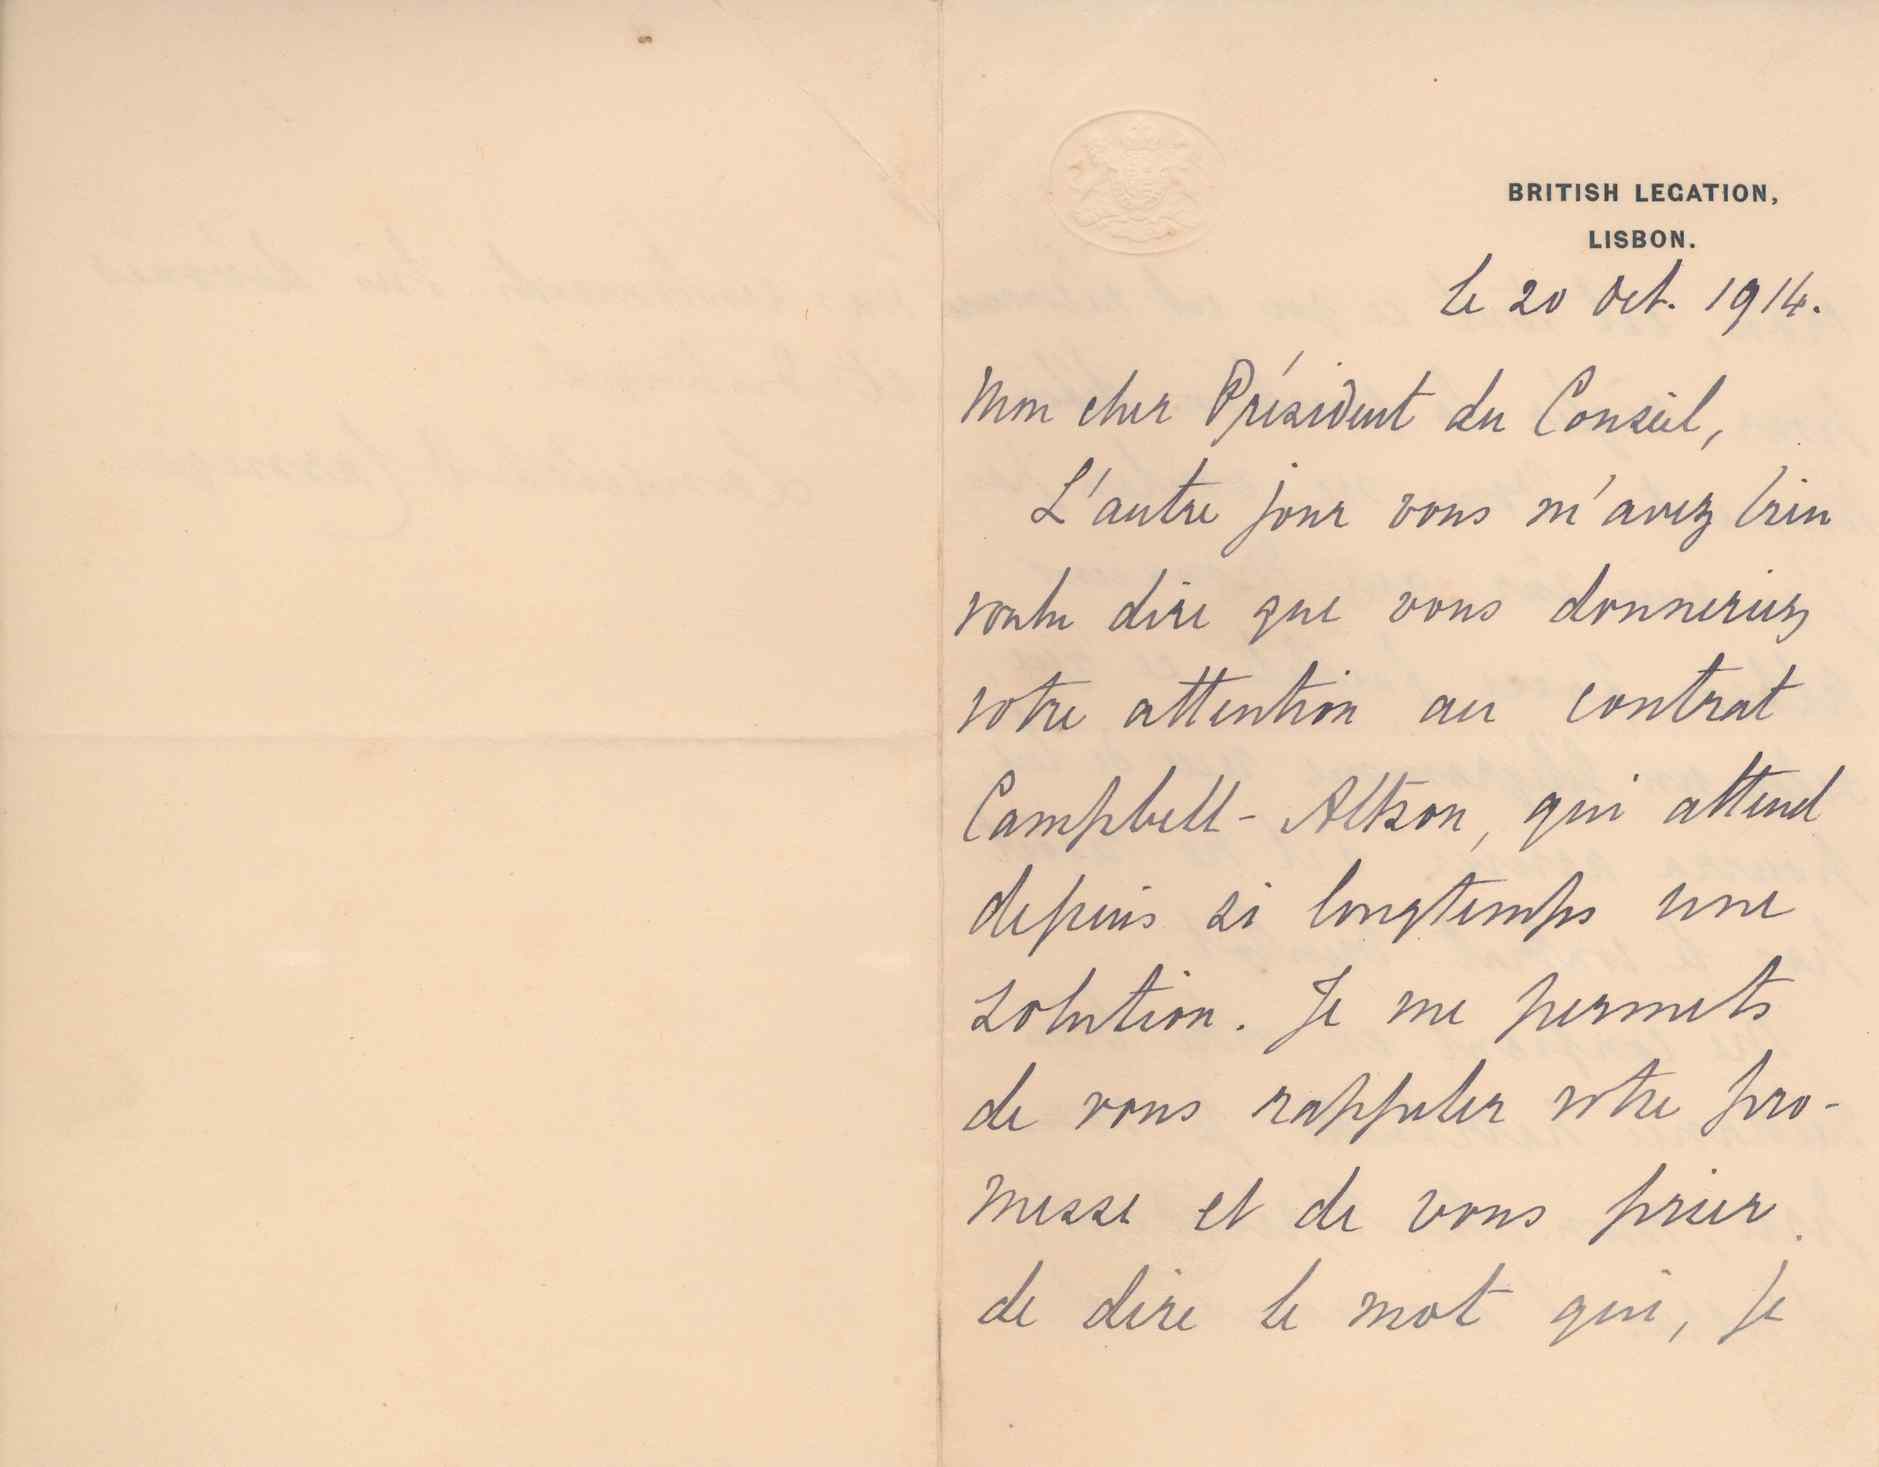 BRITISH LEGATION,
LISBON.
le 20 Oct. 1914.
Mon cher Président du Conseil,
L'autre jour vous m'avez bien
voulu dire que vous donneriez
votre attention au contrat
Campbell-Altson, qui attend
depuis si longtemps une
solution. Je me permets
de vous rappeler votre pro-
messe et de vous prier
de dire le mot qui, je